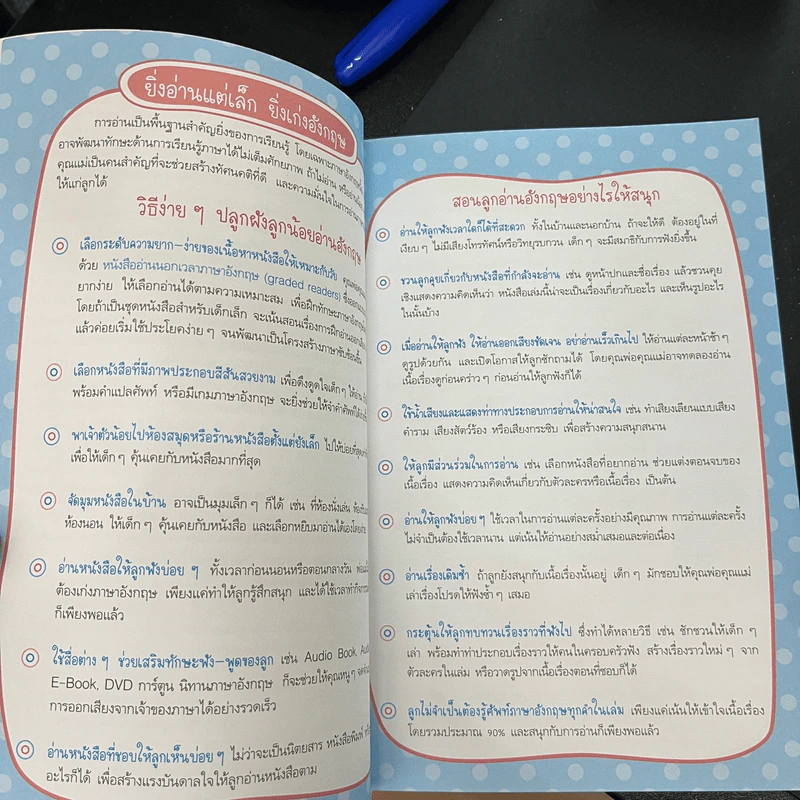 ยิ่งอ่านแต่เล็ก ยิ่งเก่งอังกฤษ
การอ่านเป็นพื้นฐานสำคัญยิ่งของการเรียนรู้ โดยเฉพาะภาษาอังกฤษ
อาจพัฒนาทักษะด้านการเรียนรู้ภาษาได้ไม่เต็มศักยภาพ ถ้าไม่อ่าน หรืออ่าน
คุณแม่เป็นคนสำคัญที่จะช่วยสร้างทัศนคติที่ดี และความมั่นใจในการอ่าน
ให้แก่ลูกได้
วิธีง่าย ๆ ปลูกฝังลูกน้อยอ่านอังกฤษ
เลือกระดับความยาก-ง่ายของเนื้อหาหนังสือให้เหมาะกับวัย
ด้วย หนังสืออ่านนอกเวลาภาษาอังกฤษ (graded readers)
ยากง่าย ให้เลือกอ่านได้ตามความเหมาะสม เพื่อฝึกทักษะภาษาอังกฤษ
โดยถ้าเป็นชุดหนังสือสำหรับเด็กเล็ก จะเน้นสอนเรื่องการฝึกอ่านออกเสียง
แล้วค่อยเริ่มใช้ประโยคง่าย ๆ จนพัฒนาเป็นโครงสร้างภาษาซับซ้อนขึ้น
เลือกหนังสือที่มีภาพประกอบสีสันสวยงาม เพื่อดึงดูดใจเด็ก ๆ ให้อ่าน
พร้อมคำแปลศัพท์ หรือมีเกมภาษาอังกฤษ จะยิ่งช่วยให้จำคำศัพท์ได้
พาเจ้าตัวน้อยไปห้องสมุดหรือร้านหนังสือตั้งแต่ยังเล็ก ไปให้บ่อยที่สุด
เพื่อให้เด็ก ๆ คุ้นเคยกับหนังสือมากที่สุด
จัดมุมหนังสือในบ้าน อาจเป็นมุมเล็ก ๆ ก็ได้ เช่น ที่ห้องนั่งเล่น
ห้องนอน ให้เด็ก ๆ คุ้นเคยกับหนังสือ และเลือกหยิบมาอ่านได้เองโดยง่าย
อ่านหนังสือให้ลูกฟังบ่อย ๆ ทั้งเวลาก่อนนอนหรือตอนกลางวัน
ต้องเก่งภาษาอังกฤษ เพียงแค่ทำให้ลูกรู้สึกสนุก และได้ใช้เวลาทำกิจกรรม
ก็เพียงพอแล้ว
ใช้สื่อต่าง ๆ ช่วยเสริมทักษะฟัง-พูดของลูก เช่น Audio Book,
E-Book, DVD การ์ตูน นิทานภาษาอังกฤษ ก็จะช่วยให้คุณหนู ๆ
การออกเสียงจากเจ้าของภาษาได้อย่างรวดเร็ว
อ่านหนังสือที่ชอบให้ลูกเห็นบ่อย ๆ ไม่ว่าจะเป็นนิตยสาร หนังสือพิมพ์
อะไรก็ได้ เพื่อสร้างแรงบันดาลใจให้ลูกอ่านหนังสือตาม
สอนลูกอ่านอังกฤษอย่างไรให้สนุก
อ่านให้ลูกฟังเวลาใดก็ได้ที่สะดวก ทั้งในบ้านและนอกบ้าน ถ้าจะให้ดี ต้องอยู่ในที่
เงียบ ๆ ไม่มีเสียงโทรทัศน์หรือวิทยุรบกวน เด็ก ๆ จะมีสมาธิกับการฟังยิ่งขึ้น
ชวนลูกคุยเกี่ยวกับหนังสือที่กำลังจะอ่าน เช่น ดูหน้าปกและชื่อเรื่อง แล้วชวนคุย
เชิงแสดงความคิดเห็นว่า หนังสือเล่มนี้น่าจะเป็นเรื่องเกี่ยวกับอะไร และเห็นรูปอะไร
ในนั้นบ้าง
เมื่ออ่านให้ลูกฟัง ให้อ่านออกเสียงชัดเจน อย่าอ่านเร็วเกินไป ให้อ่านแต่ละหน้าช้า ๆ
ดูรูปด้วยกัน และเปิดโอกาสให้ลูกซักถามได้ โดยคุณพ่อคุณแม่อาจทดลองอ่าน
เนื้อเรื่องดูก่อนคร่าว ๆ ก่อนอ่านให้ลูกฟังก็ได้
ใช้น้ำเสียงและแสดงท่าทางประกอบการอ่านให้น่าสนใจ เช่น ทำเสียงเลียนแบบเสียง
คำราม เสียงสัตว์ร้อง หรือเสียงกระซิบ เพื่อสร้างความสนุกสนาน
ให้ลูกมีส่วนร่วมในการอ่าน เช่น เลือกหนังสือที่อยากอ่าน ช่วยแต่งตอนจบของ
เนื้อเรื่อง แสดงความคิดเห็นเกี่ยวกับตัวละครหรือเนื้อเรื่อง เป็นต้น
อ่านให้ลูกฟังบ่อย ๆ ใช้เวลาในการอ่านแต่ละครั้งอย่างมีคุณภาพ การอ่านแต่ละครั้ง
ไม่จำเป็นต้องใช้เวลานาน แต่เน้นให้อ่านอย่างสม่ำเสมอและต่อเนื่อง
อ่านเรื่องเดิมซ้ำ ถ้าลูกยังสนุกกับเนื้อเรื่องนั้นอยู่ เด็ก ๆ มักชอบให้คุณพ่อคุณแม่
เล่าเรื่องโปรดให้ฟังซ้ำ ๆ เสมอ
กระตุ้นให้ลูกทบทวนเรื่องราวที่ฟังไป ซึ่งทำได้หลายวิธี เช่น ชักชวนให้เด็ก ๆ
เล่า พร้อมทำท่าประกอบเรื่องราวให้คนในครอบครัวฟัง สร้างเรื่องราวใหม่ ๆ จาก
ตัวละครในเล่ม หรือวาดรูปจากเนื้อเรื่องตอนที่ชอบก็ได้
ลูกไม่จำเป็นต้องรู้ศัพท์ภาษาอังกฤษทุกคำในเล่ม เพียงแค่เน้นให้เข้าใจเนื้อเรื่อง
โดยรวมประมาณ 90% และสนุกกับการอ่านก็เพียงพอแล้ว